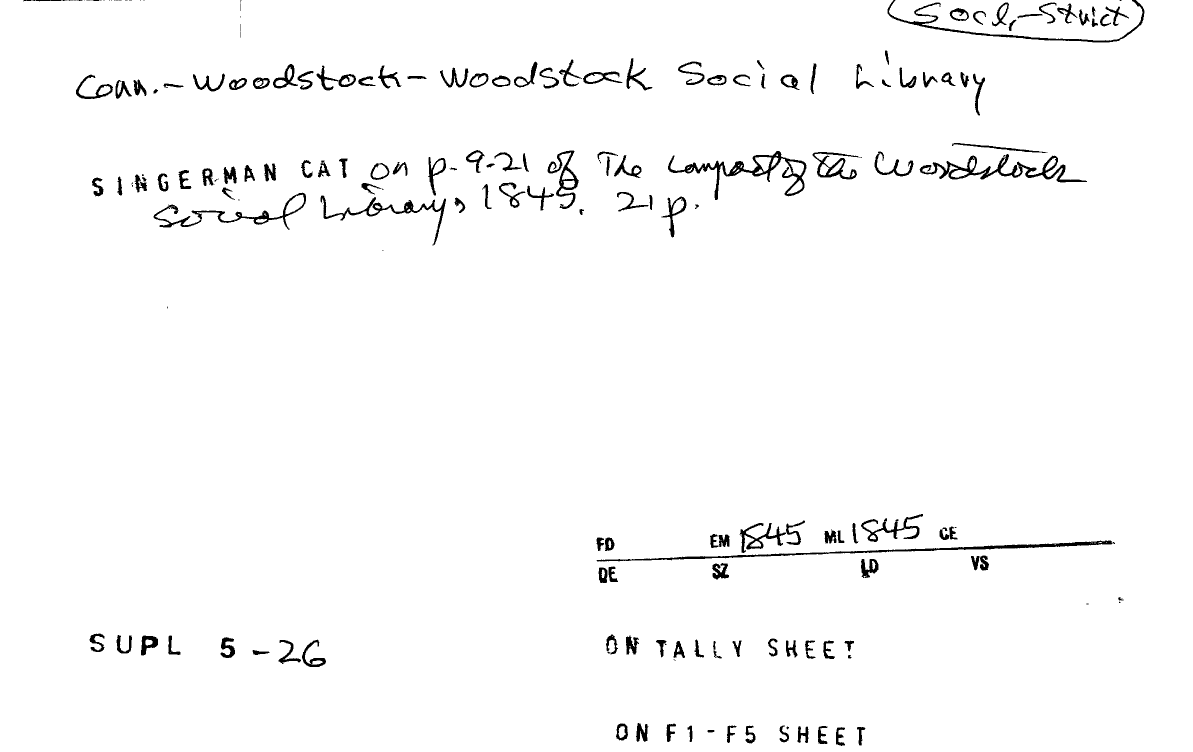 Socl-Strict
Conn. - Woodstock - Woodstock Social Library
SINGERMAN CAT on p. 9-21 of The Compact of the Woodstock
Social Library, 1845. 21 p.
FD EM 1845 ML 1845 CE
DE SZ LD VS
SUPL 5-26 ON TALLY SHEET
ON F1-F5 SHEET